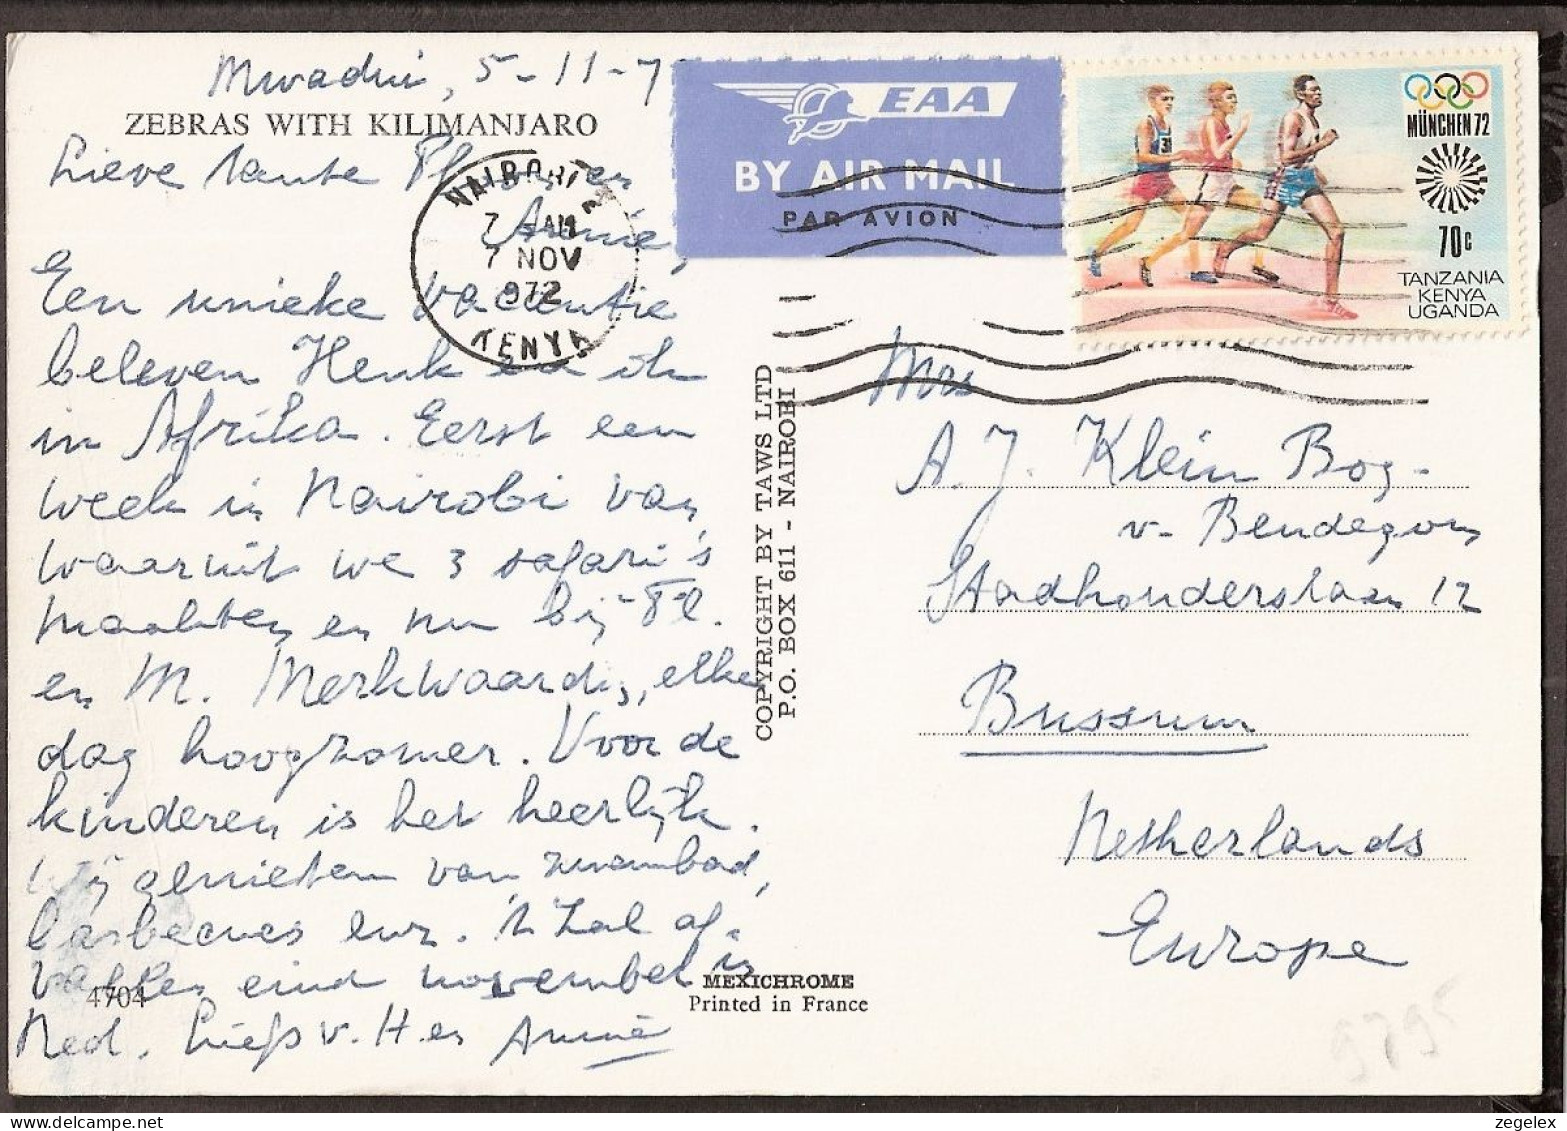 Mwadui, 5-11-7
ZEBRAS WITH KILIMANJARO
Lieve tante
Annie,
Een unieke vacantie
beleven Henk en ik
in Afrika. Eerst een
week in Nairobi van
waaruit we 3 safari's
maakten en nu bij
en M. Merkwaardig, elke
dag hoogzomer. Voor de
kinderen is het heerlijk.
Wij genieten van zwembad,
barbecues enz. 't Zal af-
vallen eind november in
Ned. Liefs v. H. en Annie
4704
NAIROBI
7 AM
7 NOV
972
KENYA
EAA
BY AIR MAIL
PAR AVION
MÜNCHEN 72
70c
TANZANIA
KENYA
UGANDA
COPYRIGHT BY TAWS LTD
P.O. BOX 611 - NAIROBI
MEXICHROME
Printed in France
Mrs
A. J. Klein Bog-
v. Bendegom
Stadhouderslaan 12
Bussum
Netherlands
Europe
9795
zegelex